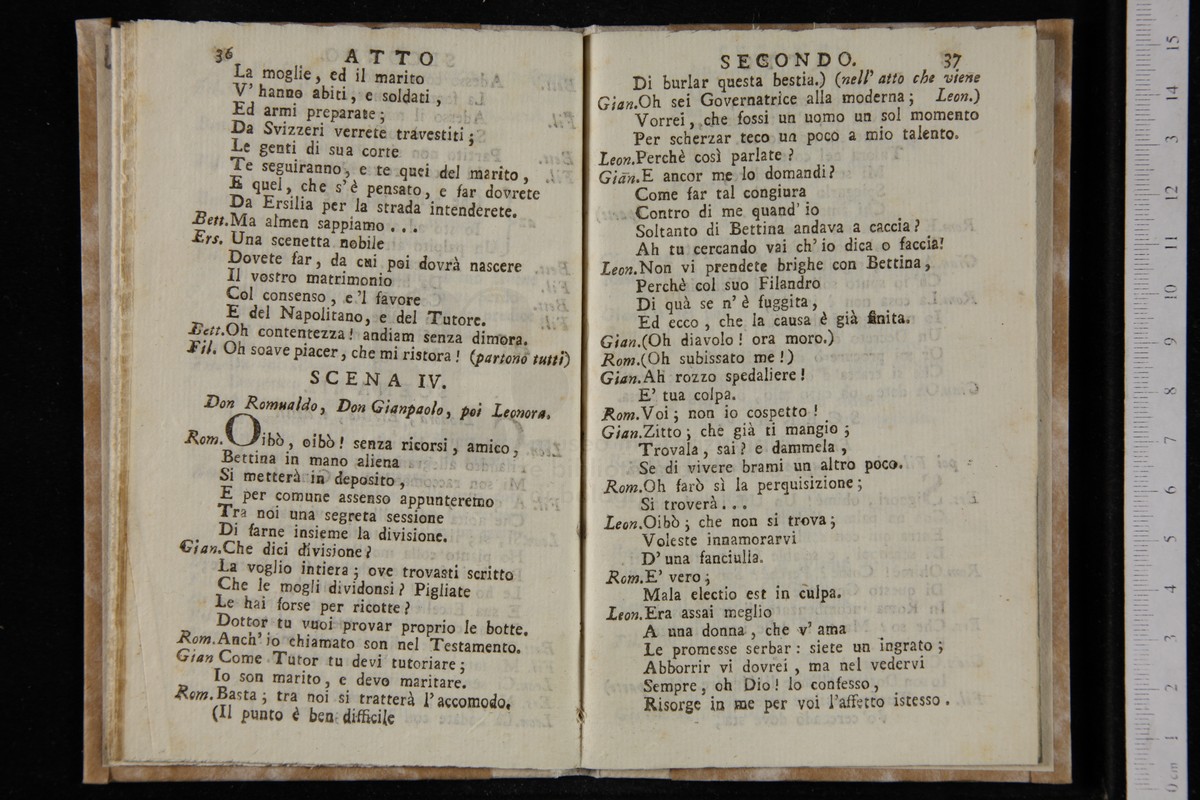 36 ATTO
La moglie, ed il marito
V' hanno abiti, e soldati,
Ed armi preparate;
Da Svizzeri verrete travestiti;
Le genti di sua corte
Te seguiranno, e te quei del marito,
E quel, che s'è pensato, e far dovrete
Da Ersilia per la strada intenderete.
Bett. Ma almen sappiamo...
Ers. Una scenetta nobile
Dovete far, da cui poi dovrà nascere
Il vostro matrimonio
Col consenso, e 'l favore
E del Napolitano, e del Tutore.
Bett. Oh contentezza! andiam senza dimora.
Fil. Oh soave piacer, che mi ristora! (partono tutti)
SCENA IV.
Don Romualdo, Don Gianpaolo, poi Leonora.
Rom. Oibò, oibò! senza ricorsi, amico,
Bettina in mano aliena
Si metterà in deposito,
E per comune assenso appunteremo
Tra noi una segreta sessione
Di farne insieme la divisione.
Gian. Che dici divisione?
La voglio intiera; ove trovasti scritto
Che le mogli dividonsi? Pigliate
Le hai forse per ricotte?
Dottor tu vuoi provar proprio le botte.
Rom. Anch' io chiamato son nel Testamento.
Gian Come Tutor tu devi tutoriare;
Io son marito, e devo maritare.
Rom. Basta; tra noi si tratterà l'accomodo.
(Il punto è ben difficile
SECONDO. 37
Di burlar questa bestia.) (nell' atto che viene
Gian. Oh sei Governatrice alla moderna; Leon.)
Vorrei, che fossi un uomo un sol momento
Per scherzar teco un poco a mio talento.
Leon. Perchè così parlate?
Gian. E ancor me lo domandi?
Come far tal congiura
Contro di me quand' io
Soltanto di Bettina andava a caccia?
Ah tu cercando vai ch' io dica o faccia!
Leon. Non vi prendete brighe con Bettina,
Perchè col suo Filandro
Di quà se n' è fuggita,
Ed ecco, che la causa è già finita.
Gian. (Oh diavolo! ora moro.)
Rom. (Oh subissato me!)
Gian. Ah rozzo spedaliere!
E' tua colpa.
Rom. Voi; non io cospetto!
Gian. Zitto; che già ti mangio;
Trovala, sai? e dammela,
Se di vivere brami un altro poco.
Rom. Oh farò sì la perquisizione;
Si troverà...
Leon. Oibò; che non si trova;
Voleste innamorarvi
D' una fanciulla.
Rom. E' vero;
Mala electio est in culpa.
Leon. Era assai meglio
A una donna, che v' ama
Le promesse serbar: siete un ingrato;
Abborrir vi dovrei, ma nel vedervi
Sempre, oh Dio! lo confesso,
Risorge in me per voi l'affetto istesso.
15
14
13
12
11
10
9
8
7
6
5
4
3
2
1
0 cm